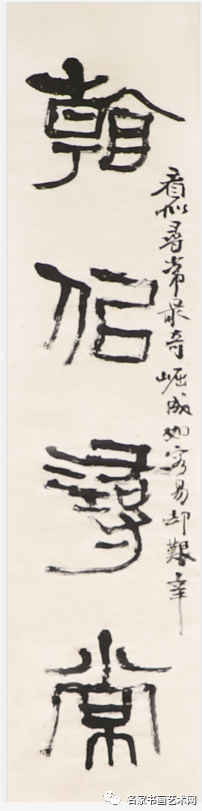 看佀尋常
看似尋常最奇崛成如容易却艱辛
名家书画艺术网